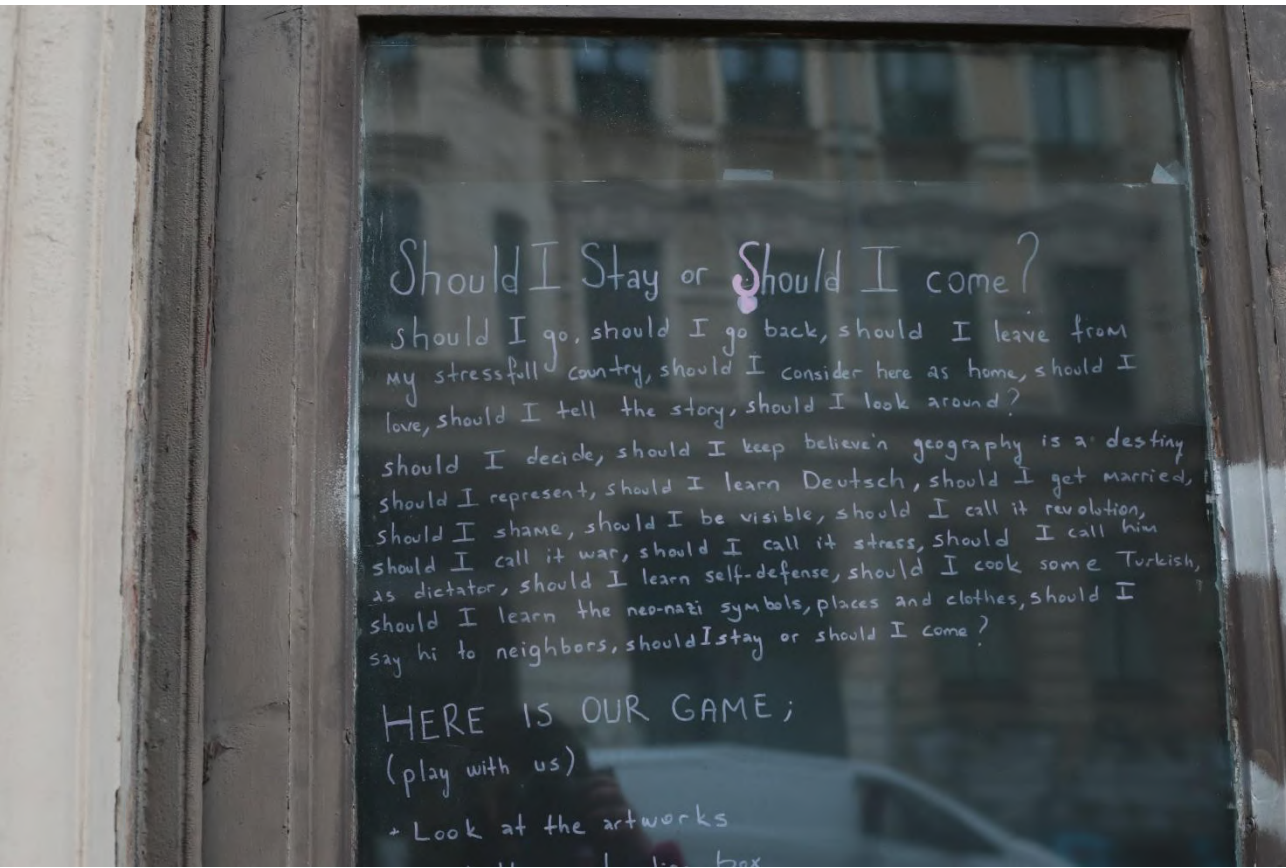 Should I Stay or Should I come?
should I go, should I go back, should I leave from
my stressfull country, should I consider here as home, should I
love, should I tell the story, should I look around?
should I decide, should I keep believe'n geography is a destiny
should I represent, should I learn Deutsch, should I get married,
should I shame, should I be visible, should I call it revolution,
should I call it war, should I call it stress, should I call him
as dictator, should I learn self-defense, should I cook some Turkish,
should I learn the neo-nazi symbols, places and clothes, should I
say hi to neighbors, should I stay or should I come?
HERE IS OUR GAME;
(play with us)
+ Look at the artworks
box